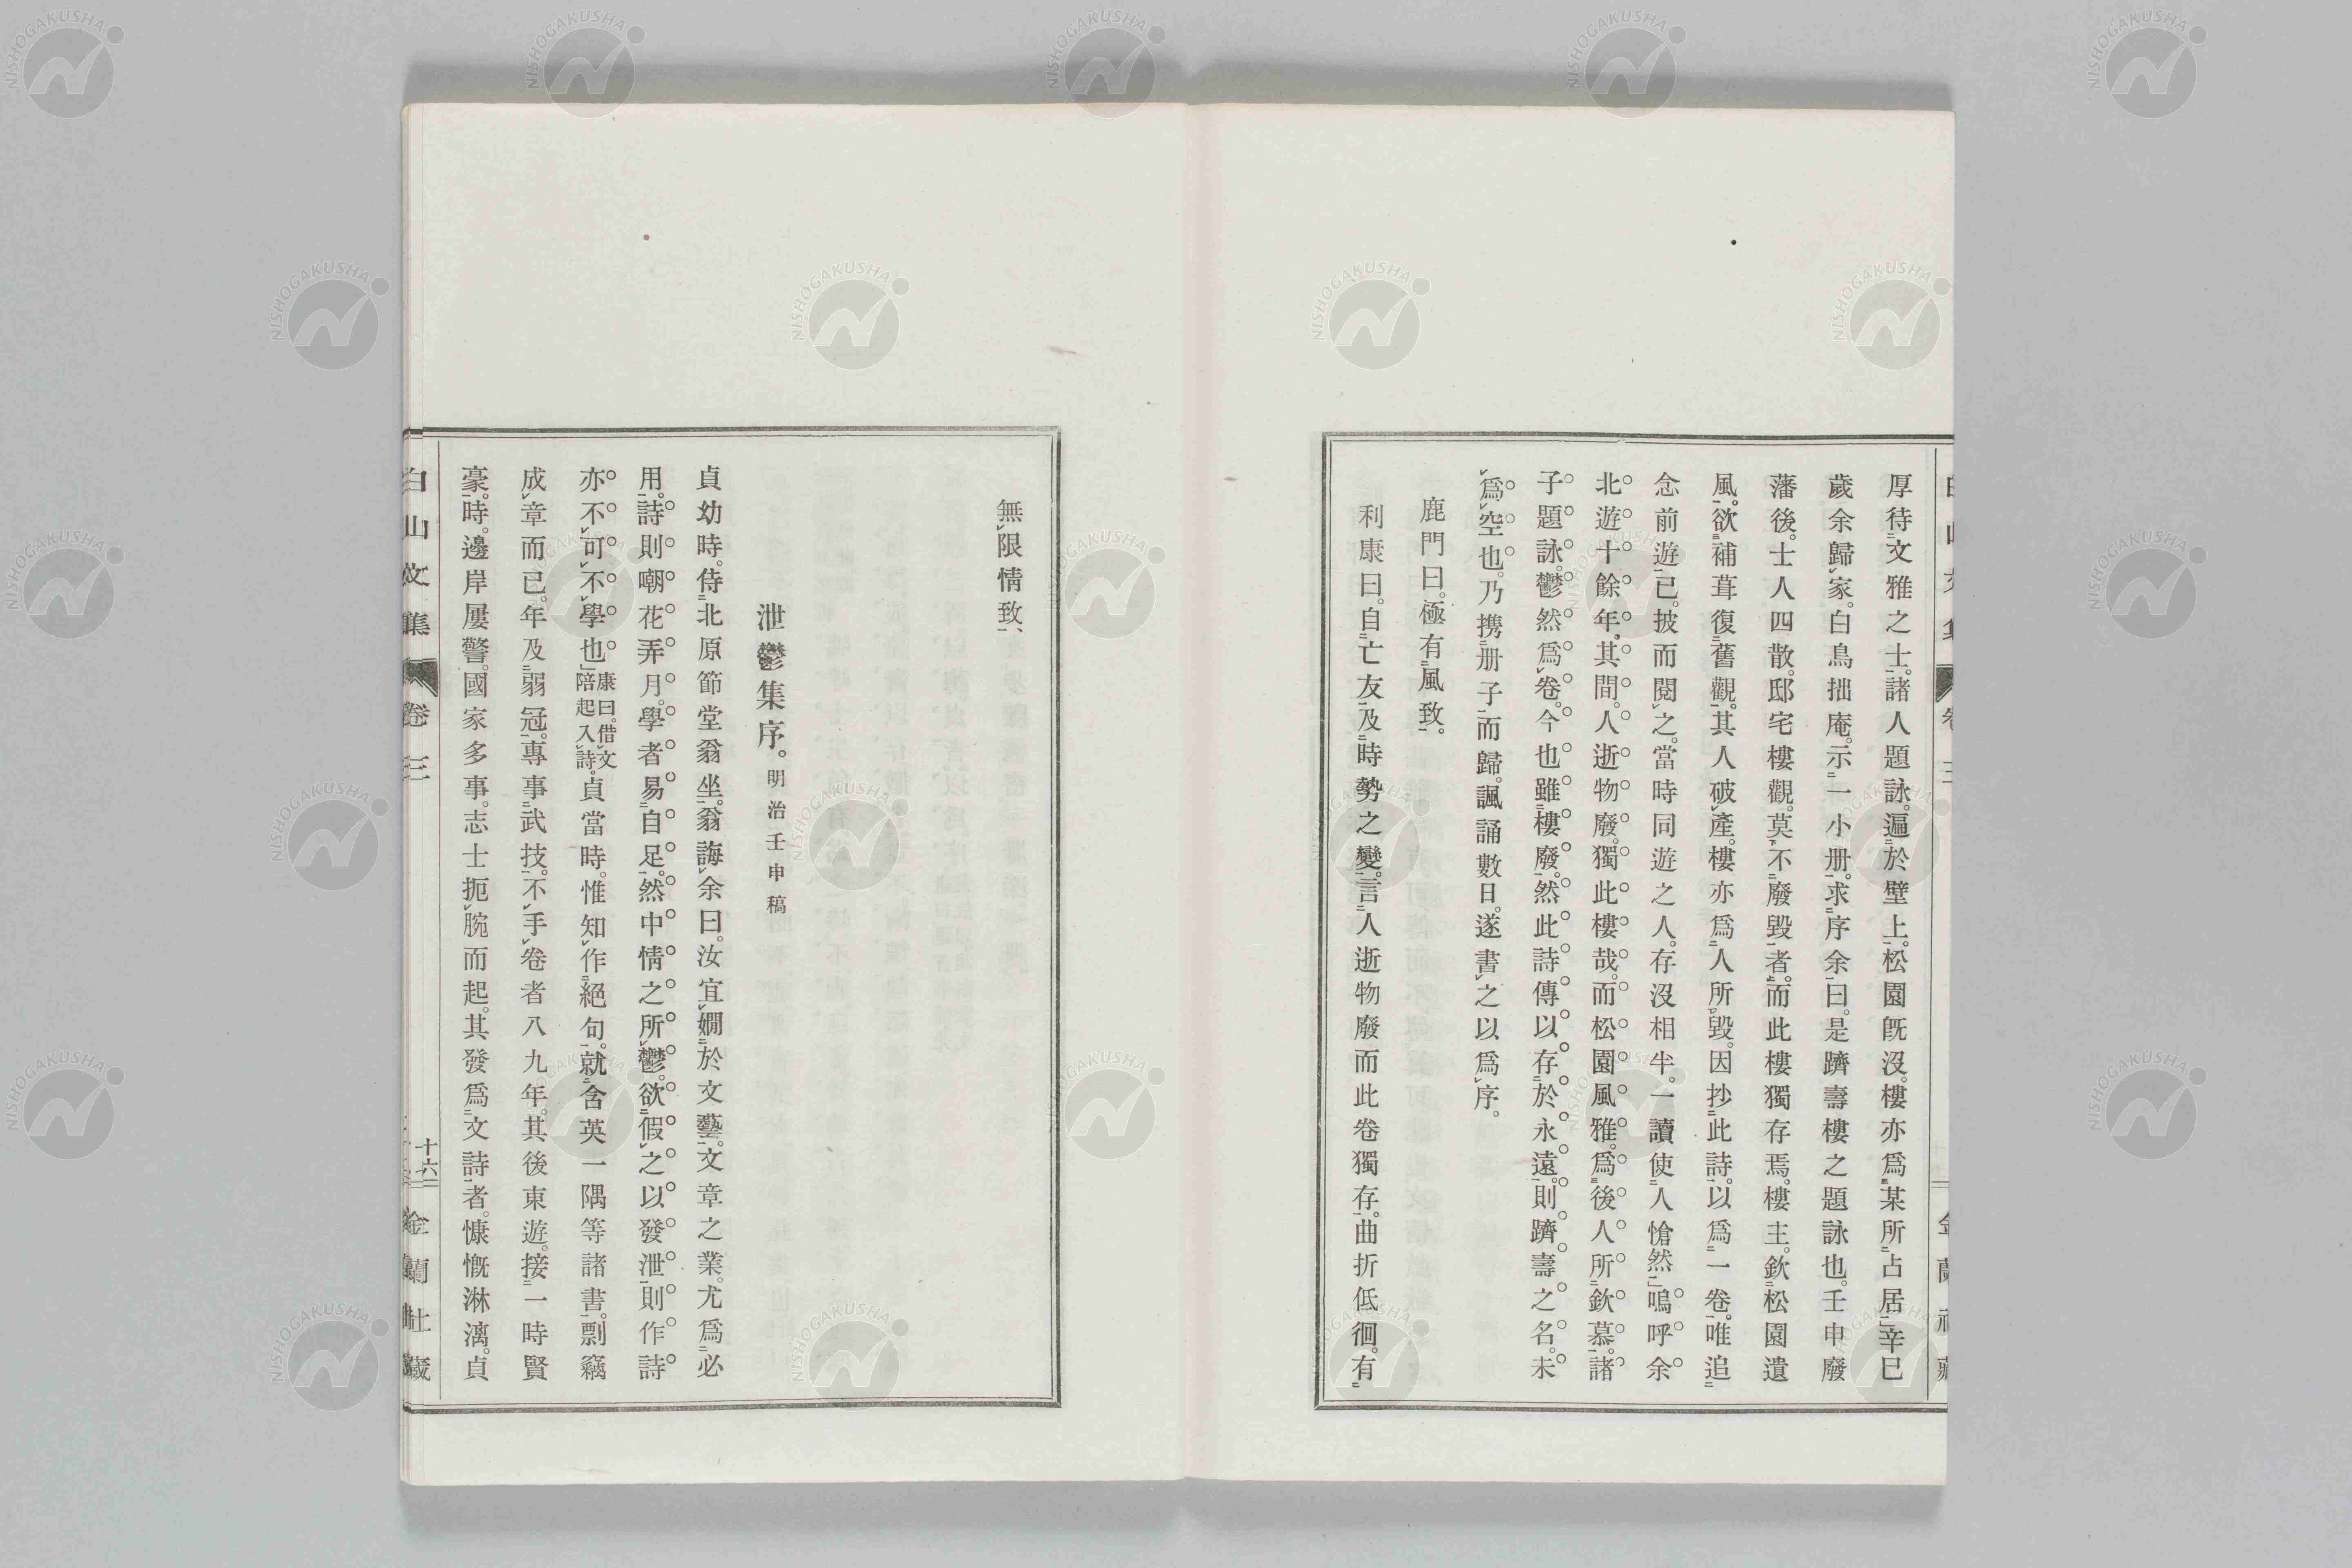 厚待文雅之士。諸人題詠。遍於壁上。松園既沒。樓亦爲某所占居」辛巳
歲余歸家。白鳥拙庵。示一小册。求序余曰。是躋壽樓之題詠也。壬申廢
藩後。士人四散。邸宅樓觀。莫不廢毀者。而此樓獨存焉。樓主。欽松園遺
風。欲補葺復舊觀。其人破產。樓亦爲人所毀。因抄此詩。以爲一卷。唯追
念前遊已。披而閱之。當時同遊之人。存沒相半。一讀使人愴然」嗚呼余
北遊十餘年。其間。人逝物廢。獨此樓哉。而松園風雅。爲後人所欽慕。諸
子題詠。鬱然爲卷。今也雖樓廢。然此詩傳以存於永遠。則躋壽之名。未
爲空也。乃携册子而歸。諷誦數日。遂書之以爲序。
鹿門曰。極有風致。
利康曰。自亡友及時勢之變。言人逝物廢而此卷獨存。曲折低徊。有
無限情致、
泄鬱集序。明治壬申稿
貞幼時。侍北原節堂翁坐。翁誨余曰。汝宜嫺於文藝。文章之業。尤爲必
用。詩則嘲花弄月。學者易自足。然中情之所鬱。欲假之以發泄則作詩
亦不可不學也」康曰。借文陪起入詩。貞當時。惟知作絕句。就含英一隅等諸書。剽竊
成章而已。年及弱冠。專事武技。不手卷者八九年。其後東遊。接一時賢
豪。時。邊岸屢警。國家多事。志士扼腕而起。其發爲文詩者。慷慨淋漓。貞
白山文集
卷三
十六
金蘭社藏